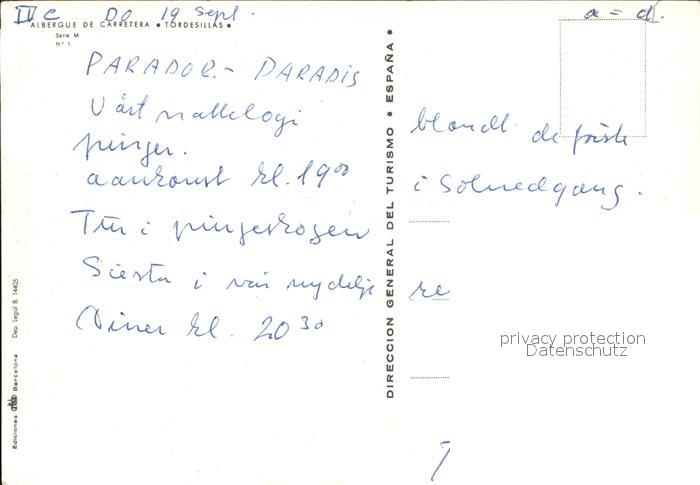 IV c DO 19 Sept.
a = d.
ALBERGUE DE CARRETERA • TORDESILLAS •
Serie M
N.º 1
PARADOR. - PARADIS
Vårt nattelogi
pinjer.
aankomst kl. 19⁰⁰
Tur i pinjeskogen
Siesta i vår nydelige
Diner kl. 20³⁰
DIRECCION GENERAL DEL TURISMO • ESPAÑA •
blandt de friske
i Solnedgang.
re
privacy protection
Datenschutz
Ediciones Barcelona Dep. Legal B. 14405